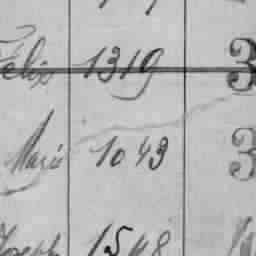 Felix 1319 3
Marie 1043 3
Joseph 1548